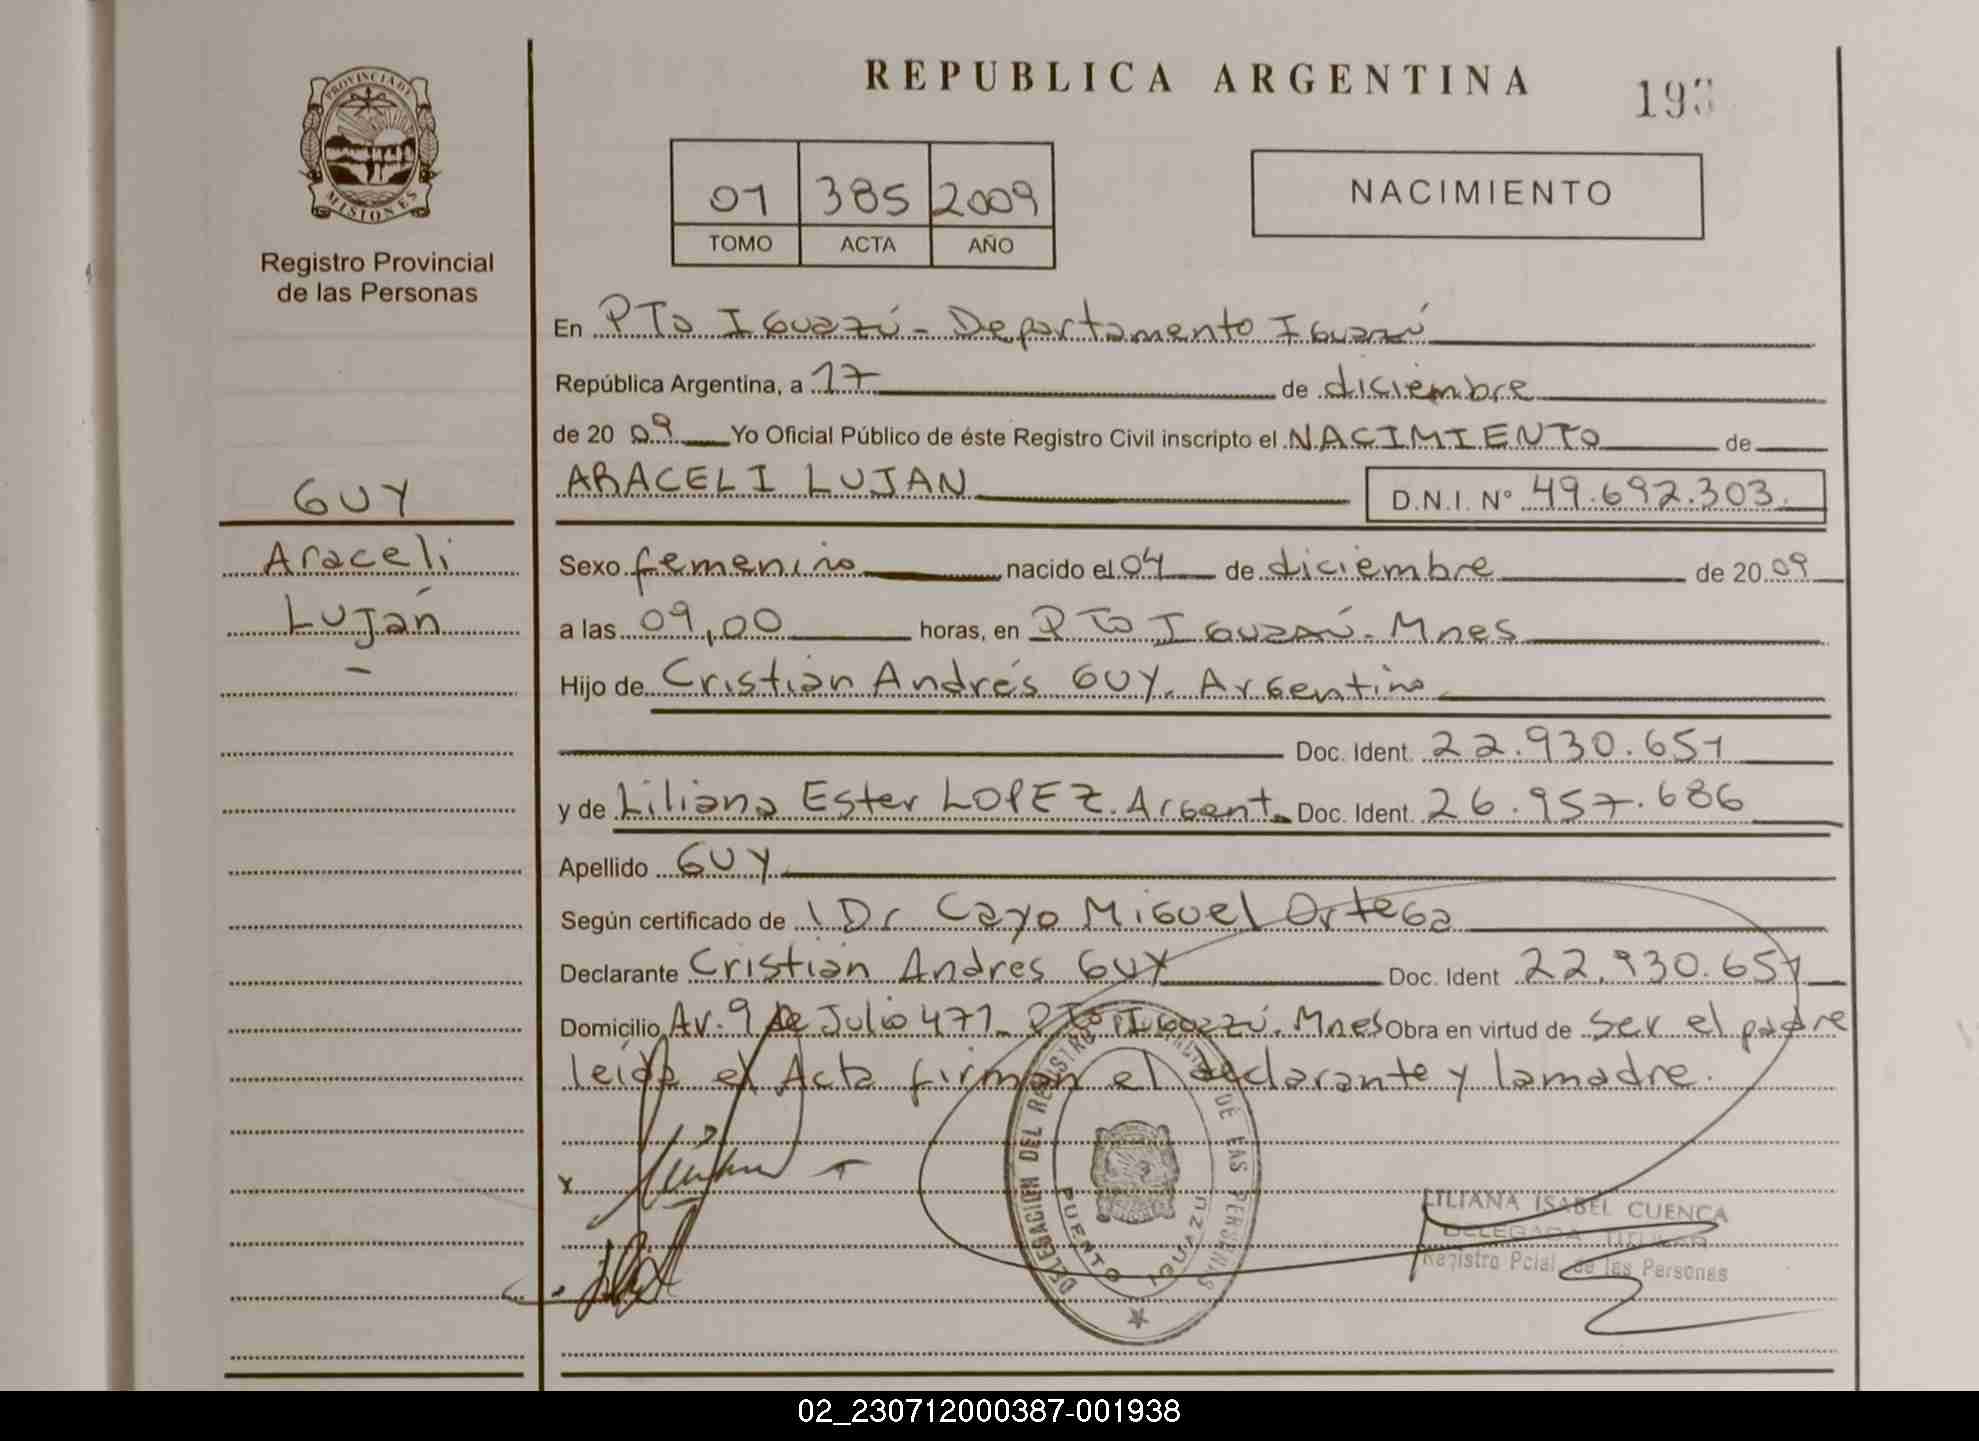 REPUBLICA ARGENTINA
PROVINCIA DE
MISIONES
Registro Provincial
de las Personas
01 385 2009
TOMO ACTA AÑO
NACIMIENTO
En PTo Iguazú - Departamento Iguazú
República Argentina, a 17 de diciembre
de 20 09 Yo Oficial Público de éste Registro Civil inscripto el NACIMIENTO de
ARACELI LUJAN D.N.I. N° 49.692.303.
GUY
Araceli
Luján
-
Sexo femenino nacido el 04 de diciembre de 20 09
a las 09,00 horas, en PTo Iguazú. Mnes
Hijo de Cristian Andrés GUY. Argentino
Doc. Ident. 22.930.651
y de Liliana Ester LOPEZ. Argent. Doc. Ident. 26.957.686
Apellido GUY
Según certificado de Dr Cayo Miguel Ortega
Declarante Cristian Andres GUY Doc. Ident 22.930.651
Domicilio Av. 9 de Julio 471. PTo Iguazú. Mnes Obra en virtud de ser el padre
leída el Acta firman el declarante y la madre.
DELEGACION DEL REGISTRO DE LAS PERSONAS
PUERTO IGUAZU
LILIANA ISABEL CUENCA
DELEGADA TITULAR
Registro Pcial. de las Personas
02_230712000387-001938